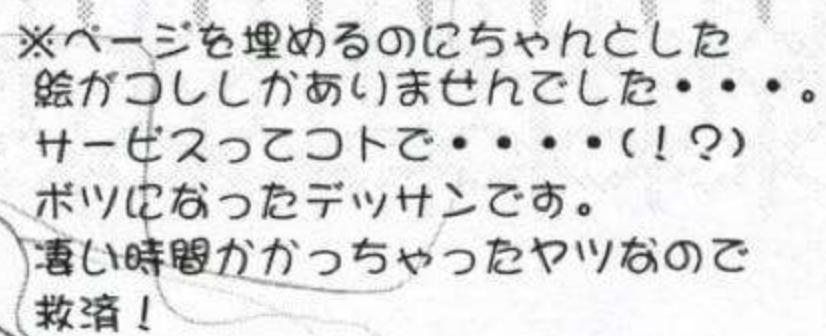 ※ページを埋めるのにちゃんとした
絵がコレしかありませんでした・・・。
サービスってコトで・・・・(！？)
ボツになったデッサンです。
凄い時間かかっちゃったヤツなので
救済！